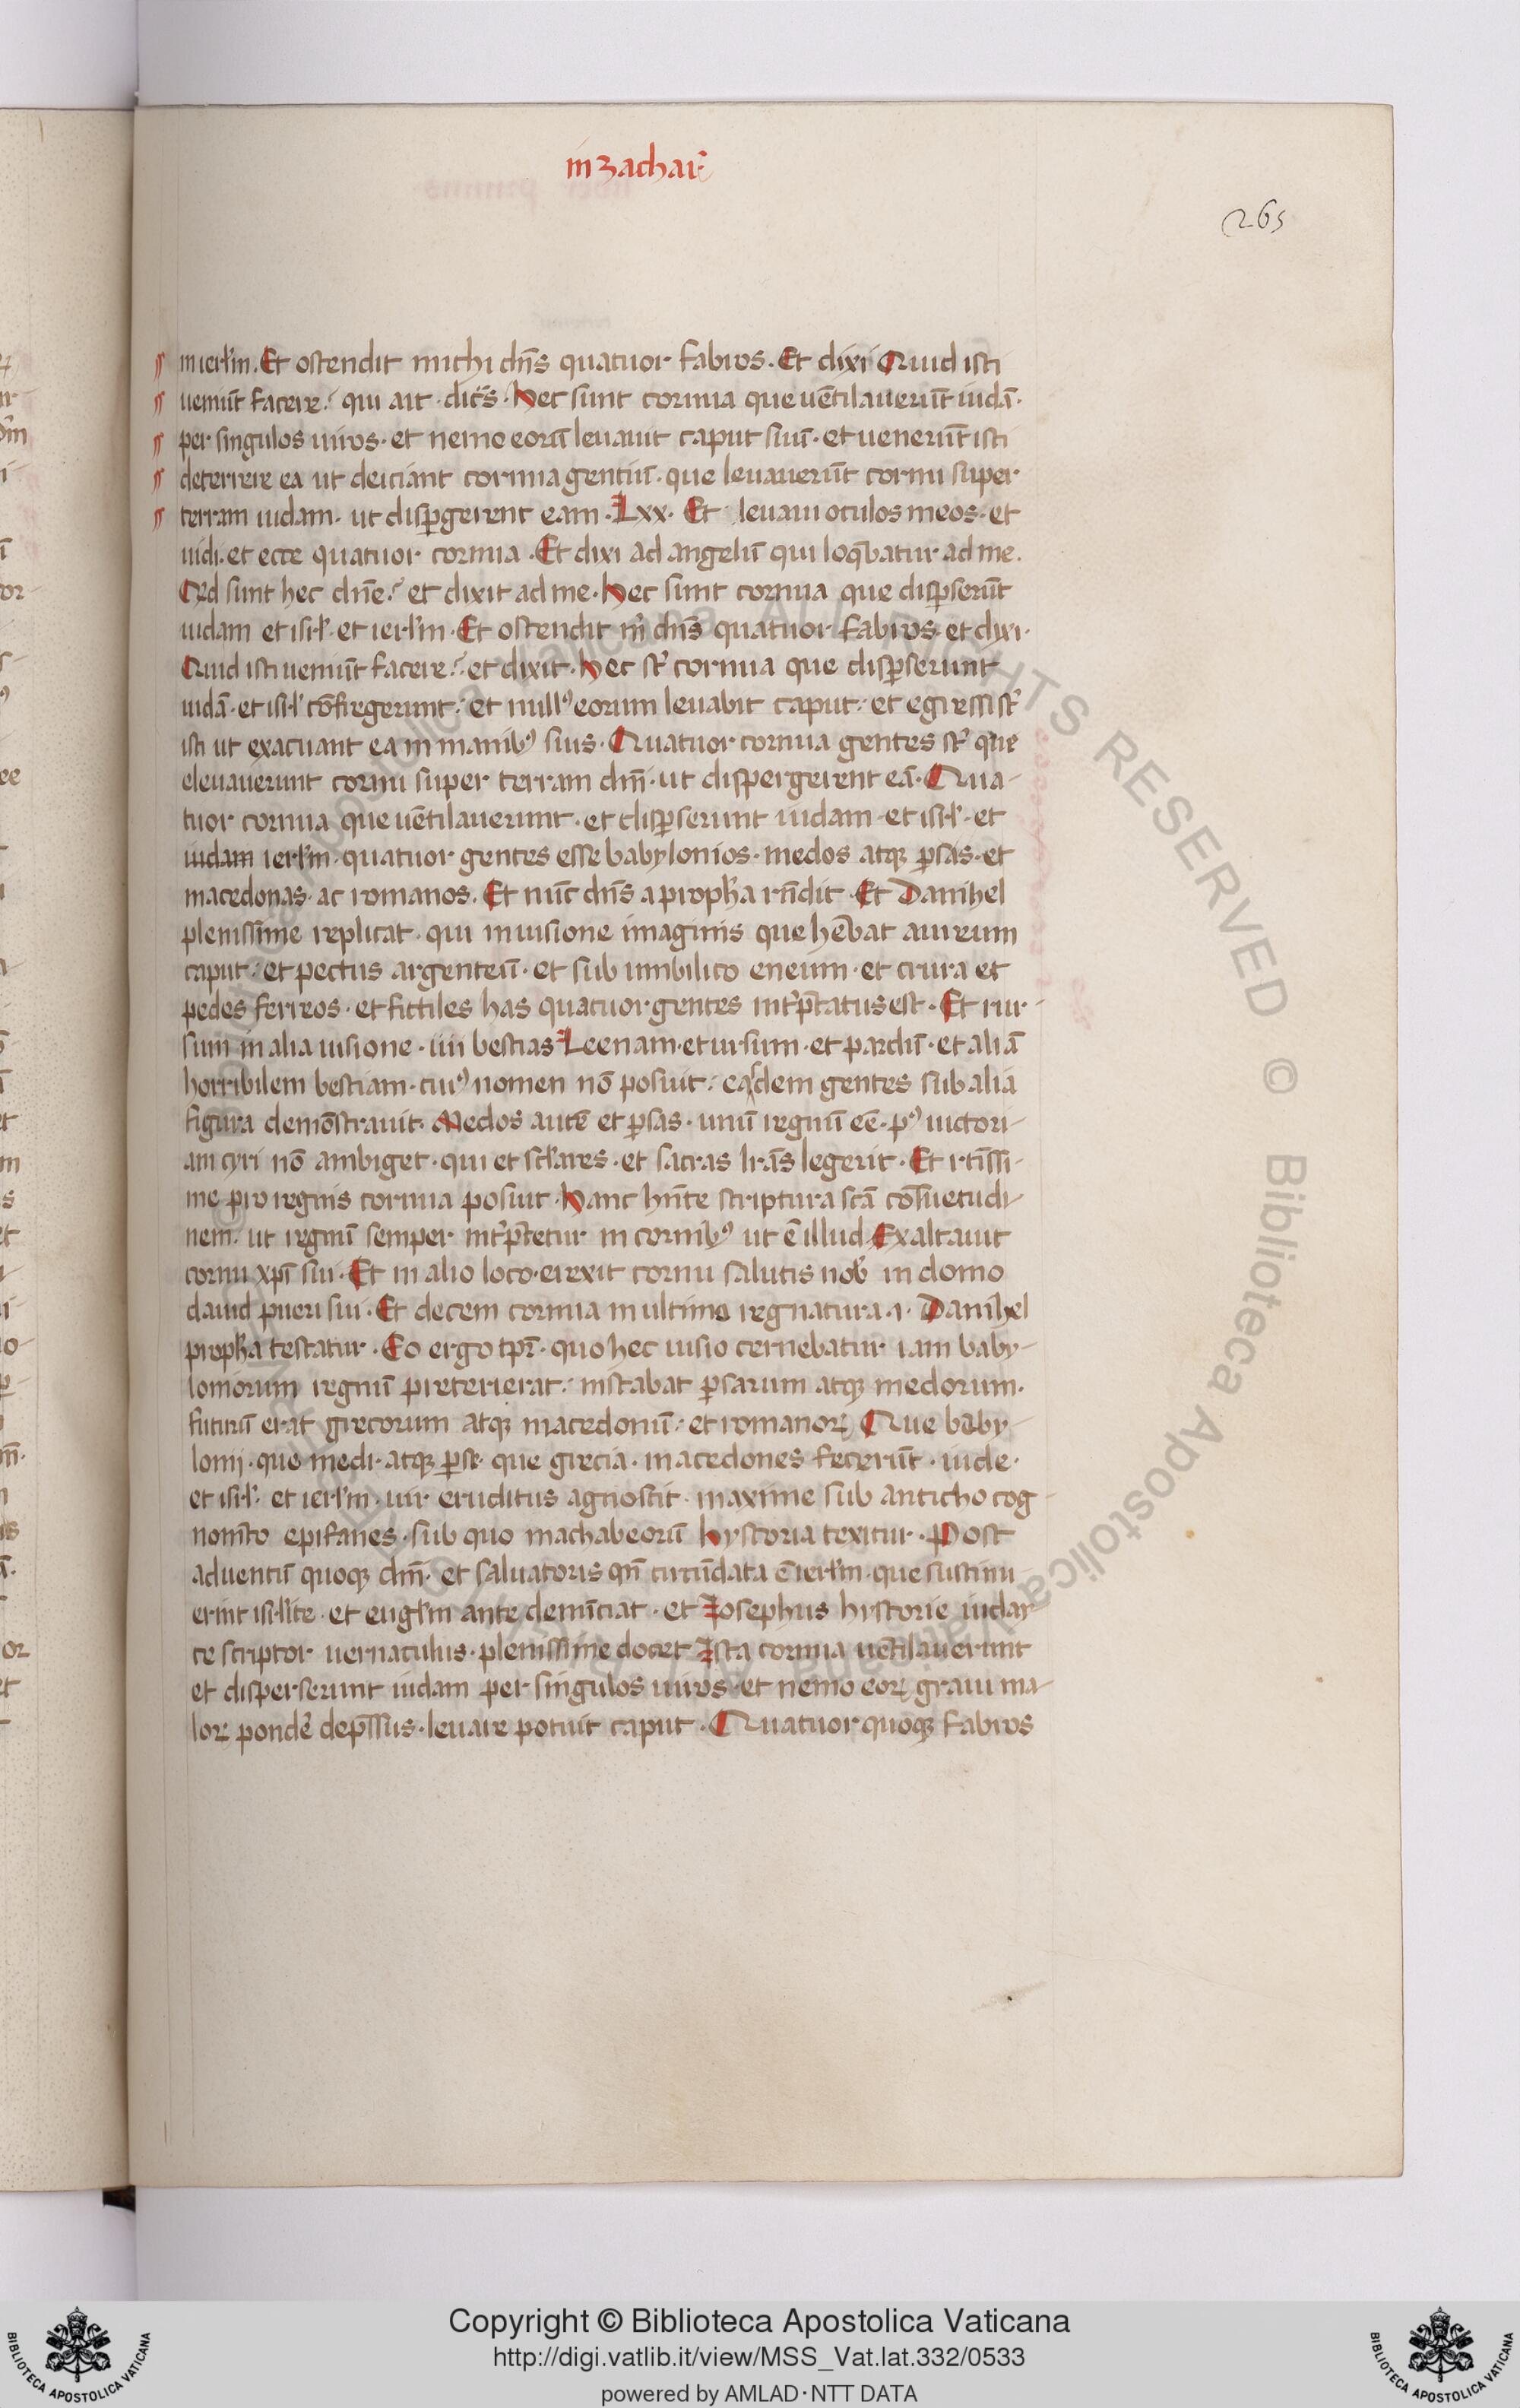 in zachar̄
265
in ierl̄m. Et ostendit michi dn̄s quatuor fabros. Et dixi Quid isti
ueniūt facere? qui ait. dicēs. hec sunt cornua que uētilauerūt iudā.
per singulos uiros. et nemo eorū leuauit caput suū. et uenerūt isti
deterrere ea ut deiciant cornua gentiū. que leuauerūt cornu super
terram iudam. ut disꝑgerent eam. Lxx. Et leuaui oculos meos. et
uidi. et ecce quatuor cornua. Et dixi ad angelū qui loq̄batur ad me.
Qd sunt hec dn̄e? et dixit ad me. hec sunt cornua que disꝑserūt
iudam et isrl̄. et ierl̄m. Et ostendit m̄ dn̄s quatuor fabros. et dixi.
Quid isti ueniūt facere? et dixit. hec st̄ cornua que disꝑserunt
iudā. et isrl̄ cōfregerunt. et nullꝰ eorum leuabit caput. et egressi st̄
isti ut exacuant ea in manibꝰ suis. Quatuor cornua gentes st̄ que
eleuauerunt cornu super terram dn̄i. ut dispergerent eā. Qua-
tuor cornua que uētilauerunt. et disꝑserunt iudam. et isrl̄. et
iudam ierl̄m. quatuor gentes esse babylonios. medos atqꝫ ꝑsas. et
macedonas. ac romanos. Et nūc dn̄s a proph̄a rn̄dit. Et Danihel
plenissime replicat. qui in uisione imaginis que hēbat aureum
caput. et pectus argenteū. et sub umbilico eneum. et crura et
pedes ferreos. et fictiles has quatuor gentes int̄ꝑtatus est. Et rur-
sum in alia uisione. iiii bestias Leenam. et ursum. et pardū. et aliā
horribilem bestiam. cuiꝰ nomen nō posuit. easdem gentes sub alia
figura demōstrauit. Medos autē et ꝑsas. unū regnū eē. pꝰ uictori-
am cyri nō ambiget. qui et scl̄ares. et sacras lr̄as legerit. Et rectissi-
me pro regnis cornua posuit. hanc hn̄te scriptura scā cōsuetudi-
nem. ut regnū semper int̄ꝑtetur in cornibꝰ ut ē illud Exaltauit
cornu xp̄i sui. Et in alio loco. erexit cornu salutis nob̄ in domo
dauid pueri sui. Et decem cornua in ultimo regnatura .i. Danihel
proph̄a testatur. Eo ergo tp̄r. quo hec uisio cernebatur iam baby-
loniorum regnū preterierat. instabat ꝑsarum atqꝫ medorum.
futurū erat grecorum atqꝫ macedonū. et romanoꝝ Que baby-
lonij. que medi. atqꝫ ꝑse. que grecia. macedones fecerūt. iude.
et isrl̄. et ierl̄m. uir eruditus agnoscit. maxime sub anticho cog-
nom̄to epifanes. sub quo machabeorū hystoria texitur. Post
aduentū quoqꝫ dn̄i. et saluatoris qn̄ circūdata ē ierl̄m. que sustinu-
erint isrl̄ite. et eugl̄m ante denūciat. et Iosephus hystorie iudai-
ce scriptor uernaculus. plenissime docet Ista cornua uētilauerunt
et disperserunt iudam per singulos uiros. et nemo eoꝝ graui ma-
loꝝ pondē dep̄ssus. leuare potuit caput. Quatuor quoqꝫ fabros
Copyright © Biblioteca Apostolica Vaticana
http://digi.vatlib.it/view/MSS_Vat.lat.332/0533
powered by AMLAD·NTT DATA